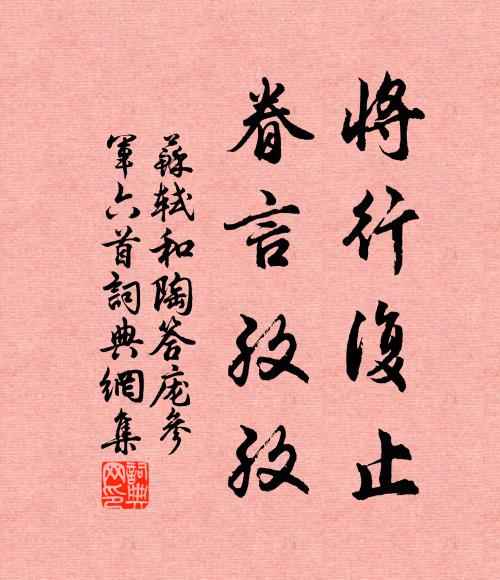 將行復止
眷言孜孜
蘇軾和陶答庞參
軍六首詞典網集
詞典
网印